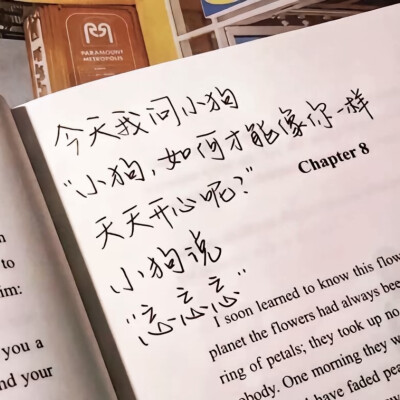 PARAMOUNT
METROPOLIS
今天我问小狗
“小狗，如何才能像你一样
天天开心呢？”
小狗说
“忘忘忘”
to
im:
you a
nd your
Chapter 8
I soon learned to know this flow
planet the flowers had always been
ring of petals; they took up no
body. One morning they w
have faded pea